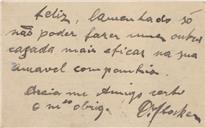 feliz, lamentando só
não poder fazer uma outra
caçada mais eficaz na sua
amavel companhia.
Creia-me Amigo certo
e mto obrigo